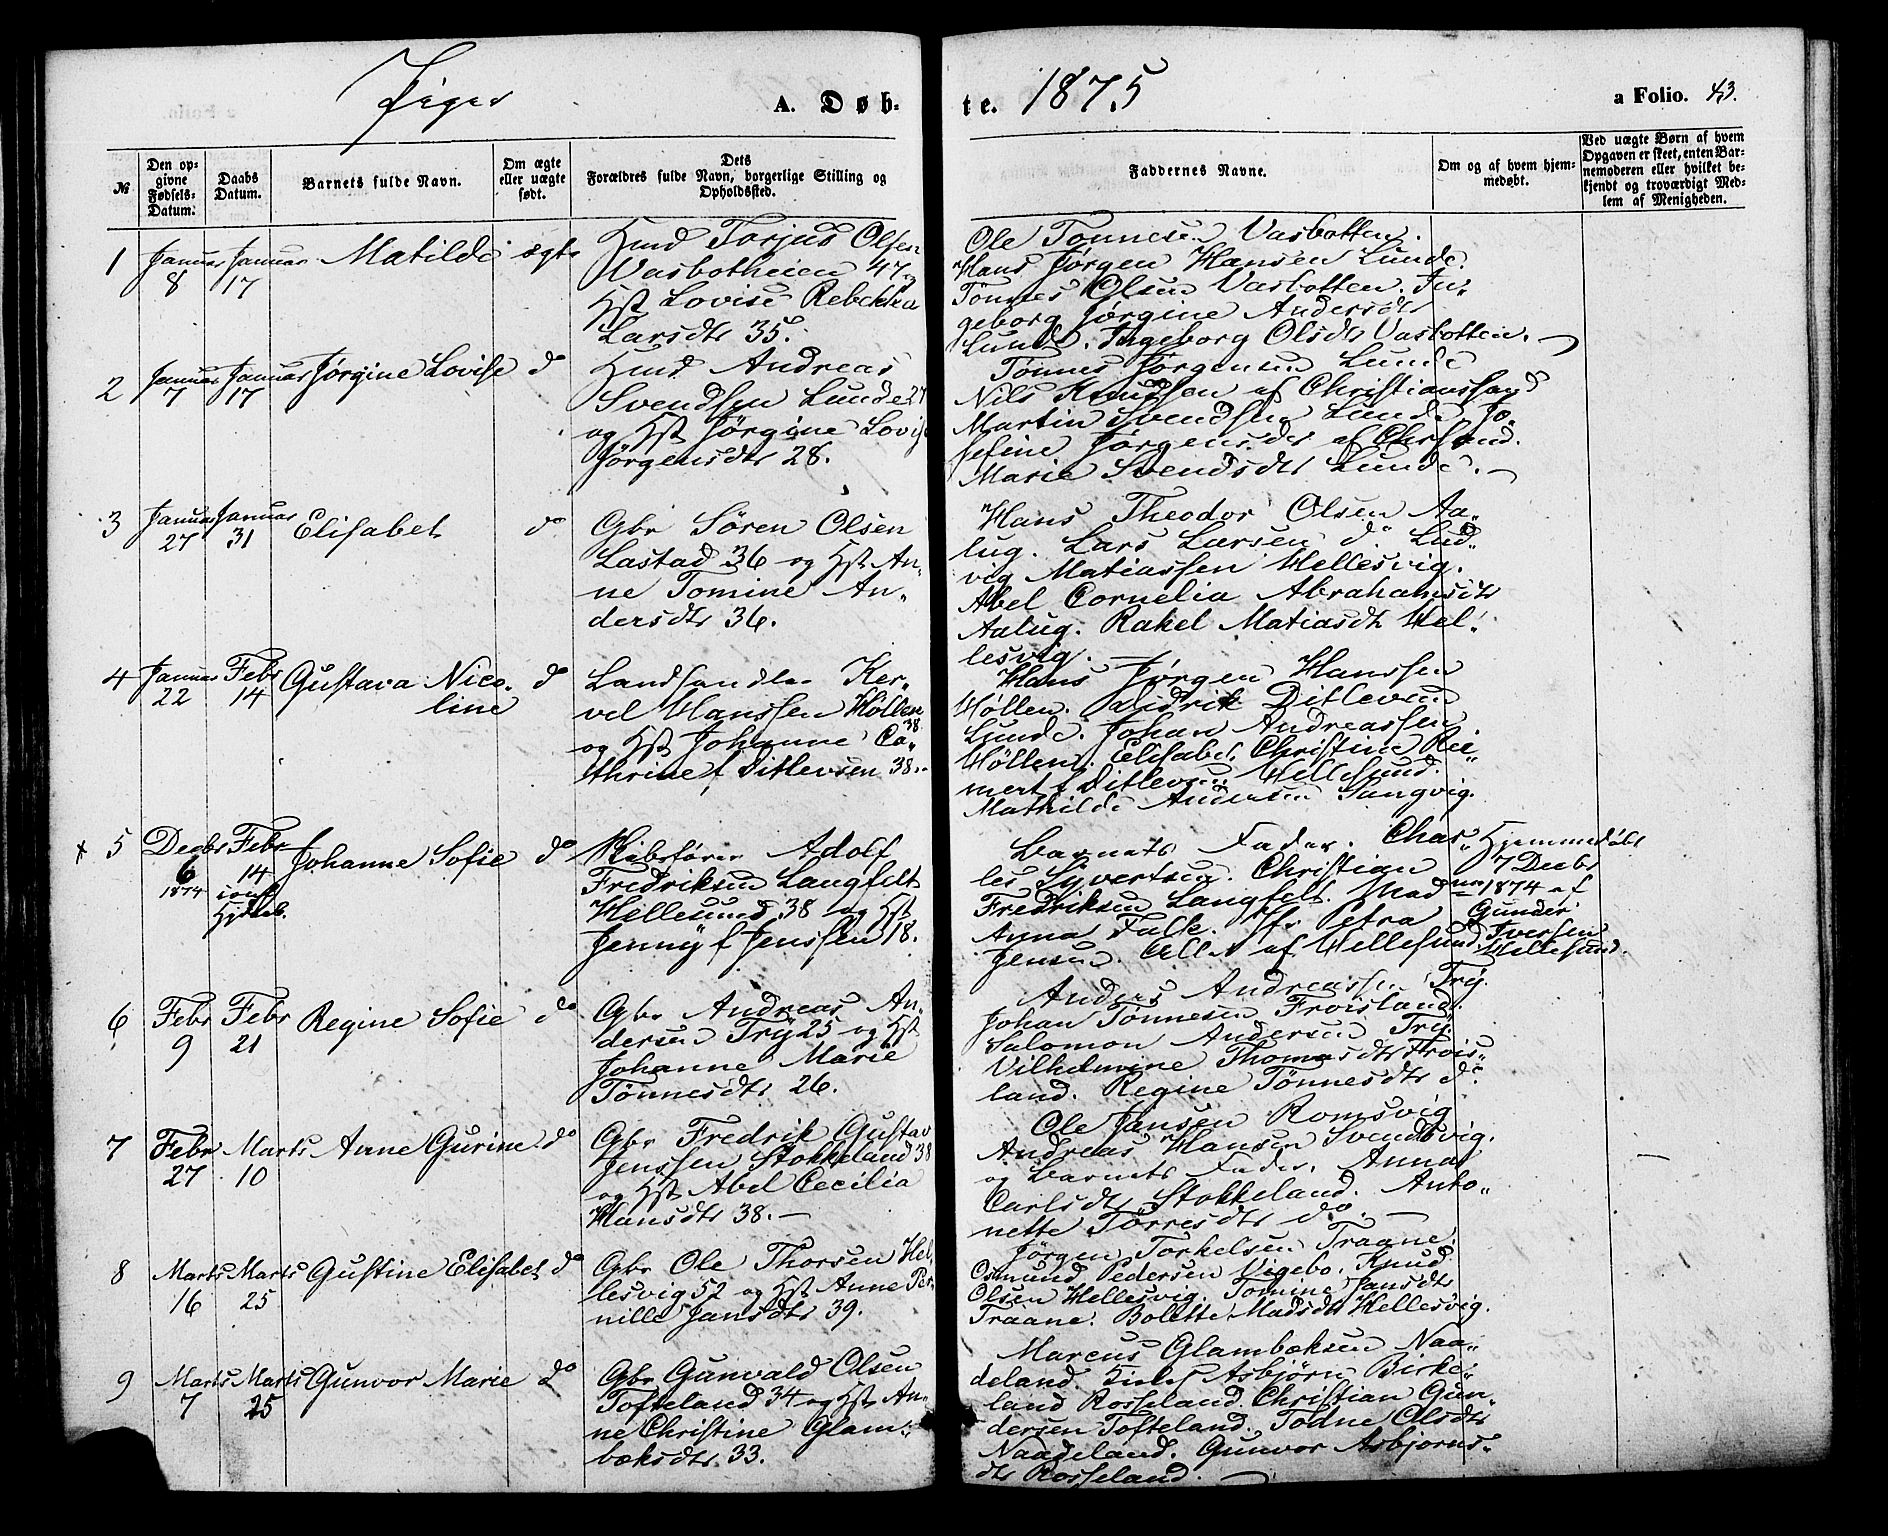 Piger A. Døb-
te. 1875 a Folio. 43.
№
Den op-
givne
Fødsels-
Datum.
Daabs
Datum.
Barnets fulde Navn.
Om ægte
eller uægte
født.
Dets
Forældres fulde Navn, borgerlige Stilling og
Opholdssted.
Faddernes Navne.
Om og af hvem hjem-
medøbt.
Ved uægte Børn af hvem
Opgaven er skeet, enten Bar-
nemoderen eller hvilket be-
kjendt og troværdigt Med-
lem af Menigheden.
1 Januar 8 Januar 17 Matilde ægte
Hmd Torjus Olsen
Vasbotheien 47 og
Hst Lovise Rebekka
Larsdtr 35.
Ole Tønnesen Vasbotten.
Hans Jørgen Hansen Lunde.
Tønnes Olsen Vasbotten. In-
geborg Jørgine Andersdtr
Lunde. Ingeborg Olsdtr Vasbotten.
2 Januar 7 Januar 17 Jørgine Lovise do
Hmd Andreas
Svendsen Lunde 27
og Hst Jørgine Lovise
Jørgensdtr 28.
Tønnes Jørgensen Lunde
Nils Knudsen af Christianssand
Martin Svendsen Lunde. Jo-
sefine Jørgensdtr af Chrsand.
Marie Svendsdtr Lunde.
3 Januar 27 Januar 31 Elisabet do
Gbr Sören Olsen
Lastad 36 og Hst An-
ne Tomine An-
dersdtr 36.
Hans Theodor Olsen Aa-
lug. Lars Larsen do Lud-
vig Matiassen Hellesvig.
Abel Cornelia Abrahamsdtr
Aalug. Rakel Matiasdtr Hel-
lesvig.
4 Januar 22 Febr 14 Gustava Nico-
line do
Landhandler Ker-
vel Hanssen Höllen 38
og Hst Johanne Ca-
thrine f Ditlevsen 38.
Hans Jørgen Hanssen
Höllen. Didrik Ditlevsen
Lunde. Johan Andreassen
Höllen. Elisabet Christine Rei-
mert f Ditlevsen Hellesund.
Mathilde Andersen Langvig.
x 5 Decbr 6 1874 Febr 14 conf Hjdaab. Johanne Sofie do
Skibsfører Adolf
Fredriksen Langfelt
Hellesund 38 og Hst
Jenny f Jenssen 18.
Barnets Fader. Char-
les Syvertsen. Christian
Fredriksen Langfelt. Mad
Anna Falk. Jfr Petra
Jensen. Alle af Hellesund.
Hjemmedøbt
7 Decbr
1874 af
Gunder
Iversen
Hellesund.
6 Febr 9 Febr 21 Regine Sofie do
Gbr Andreas An-
dersen Try 25 og Hst
Johanne Marie
Tönnesdtr 26.
Anders Andreassen Try.
Johan Tønnesen Froisland.
Salomon Andersen Try.
Vilhelmine Thomasdtr Frois-
land. Regine Tønnesdtr do.
7 Febr 27 Marts 10 Anne Gurine do
Gbr Fredrik Gustav
Jenssen Stokkeland 38
og Hst Abel Cecilia
Hansdtr 38.
Ole Jansen Romsvig
Andreas Hansen Svendsvig.
og Barnets Fader. Anna
Carlsdtr Stokkeland. Anto-
nette Torresdtr do.
8 Marts 16 Marts 25 Gustine Elisabet do
Gbr Ole Thorsen Hel-
lesvig 52 og Hst Anne Per-
nille Jansdtr 39.
Jørgen Torkelsen Traane.
Osmund Pedersen Vigebo. Knud
Olsen Hellesvig. Tomine Jansdtr
Traane. Bolette Madsdtr Hellesvig.
9 Marts 7 Marts 25 Gunvor Marie do
Gbr Gunvald Olsen
Tofteland 34 og Hst An-
ne Christine Glam-
beksdtr 33.
Marcus Glambeksen Naa-
deland. Asbjørn Birke-
land Rosseland. Christian Gun-
dersen Tofteland. Todne Olsdtr
Naadeland. Gunvor Asbjørns-
dtr Rosseland.